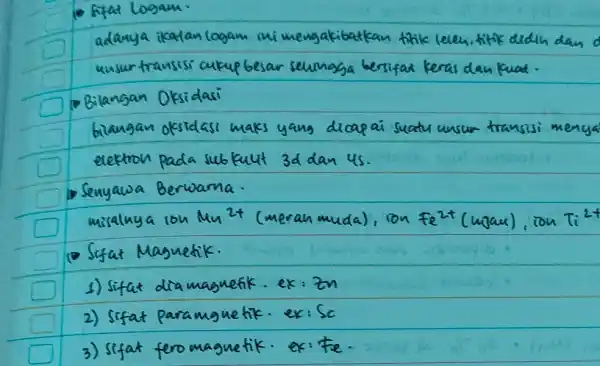 Sifat Logam.
adanya ikatan logam ini mengakibatkan titik leleh, titik didih dan d
unsur transisi cukup besar sehingga bersifat keras dan kuat.
Bilangan Oksidasi
bilangan oksidasi maks yang dicapai suatu unsur transisi menya
elektron pada subkulit 3d dan 4s.
Senyawa Berwarna.
misalnya ion Mn²⁺ (merah muda), ion Fe²⁺ (hijau), ion Ti²⁺
Sifat Magnetik.
1) Sifat diamagnetik. ex: Zn
2) Sifat paramgnetik. ex: Sc
3) Sifat feromagnetik. ex: Fe.